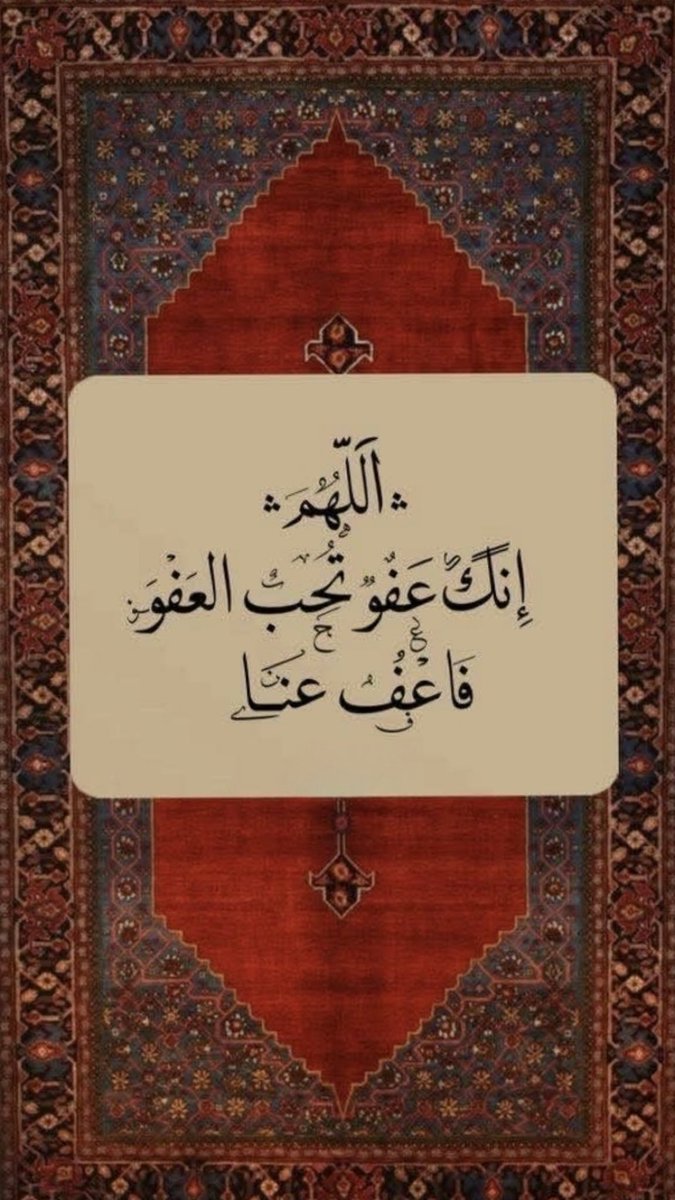 اَللّٰهُمَ
إِنكَ عَفُوٌ تُحِبُ العَفْوَ
فَاعْفُ عَنَا